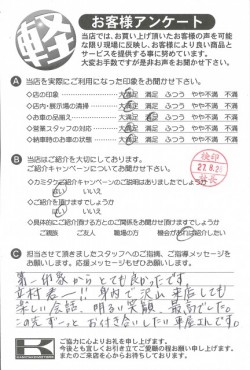 軽
お客様アンケート
当店では、お買い上げ頂いたお客様の声を可能
な限り現場に反映し、お客様により良い商品と
サービスを提供する事に努めています。
大変お手数ですが是非お声をお聞かせ下さい。
A 当店を実際にご利用になった印象をお聞かせ下さい。
◇店の印象 大満足 満足 ふつう やや不満 不満
◇店内・展示場の清掃 大満足 満足 ふつう やや不満 不満
◇お車の品揃え 大満足 満足 ふつう やや不満 不満
◇営業スタッフの対応 大満足 満足 ふつう やや不満 不満
◇納車時のお車の状態 大満足 満足 ふつう やや不満 不満
B 当店はご紹介を大切にしております。
ご紹介キャンペーンについてお聞かせ下さい。
27.8.
◇カミタケご紹介キャンペーンのご説明はありましたでしょうか
はい いいえ
◇ご紹介がお聞かせ頂けますでしょうか
はい いいえ
◇具体的にご紹介頂ける方とのご関係をお聞かせ頂けますでしょうか
ご親戚 ご友人 職場の方 機会があれば紹介したい
C 担当させて頂きましたスタッフへのご指摘、ご指導メッセージを
お願いします。応援メッセージもぜひお願いします。
第一印象からとても良かったです。
立村君!! 身内で沢山来店しても
楽しい会話、明るい笑顔、最高でした。
この先ずーっとお付き合いしたい車屋さんです。
K
ご協力に心よりお礼を申し上げます。
今後とも宜しくお引き立てご愛顧の程お願い申し上げます。
またのご来店を心からお待ちしております。